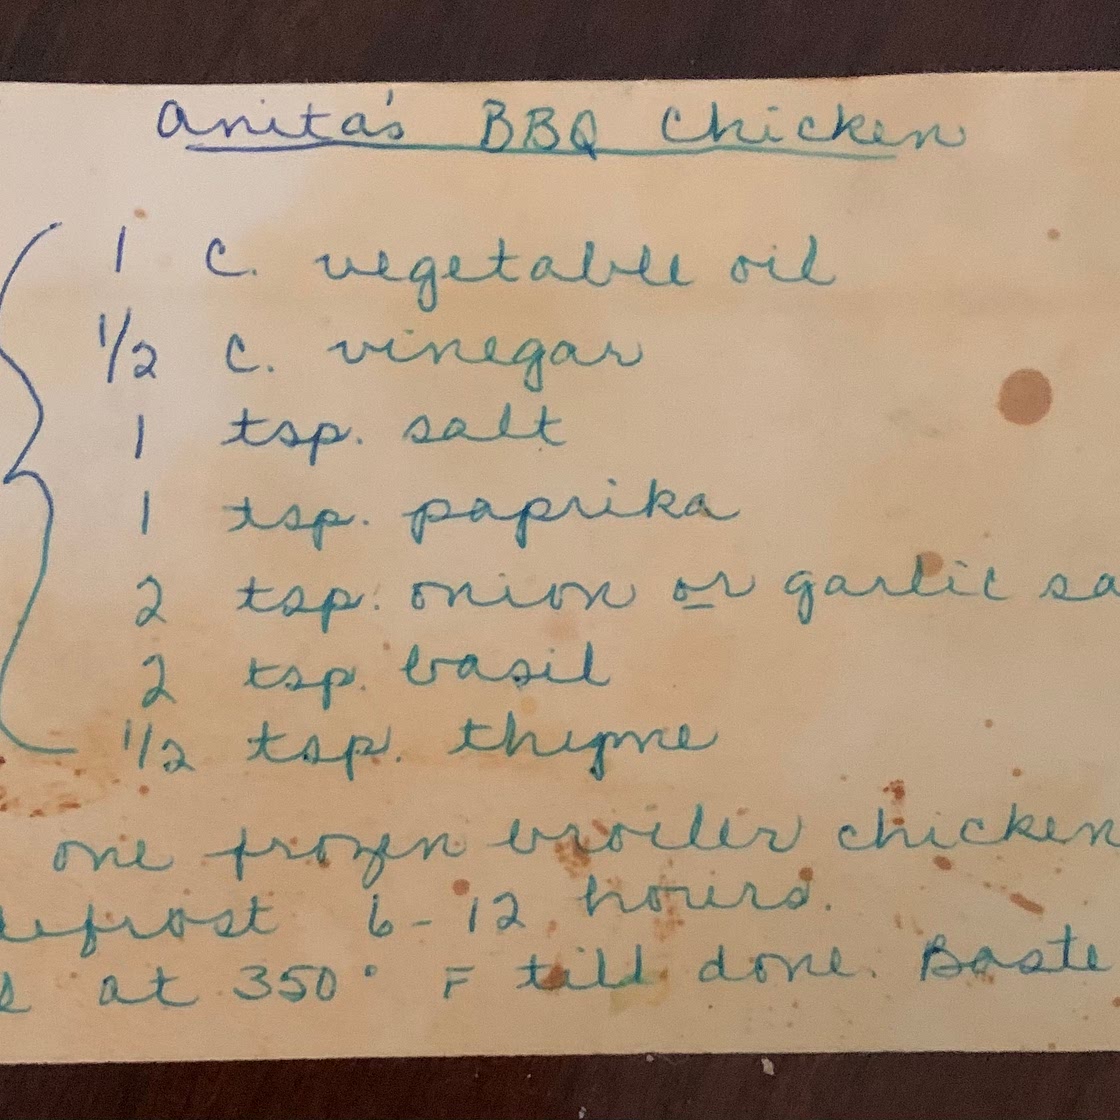 Anita's BBQ Chicken
1 c. vegetable oil
1/2 c. vinegar
1 tsp. salt
1 tsp. paprika
2 tsp. onion or garlic sa
2 tsp. basil
1/2 tsp. thyme
one frozen broiler chicken
defrost 6-12 hours.
at 350° F till done. Baste